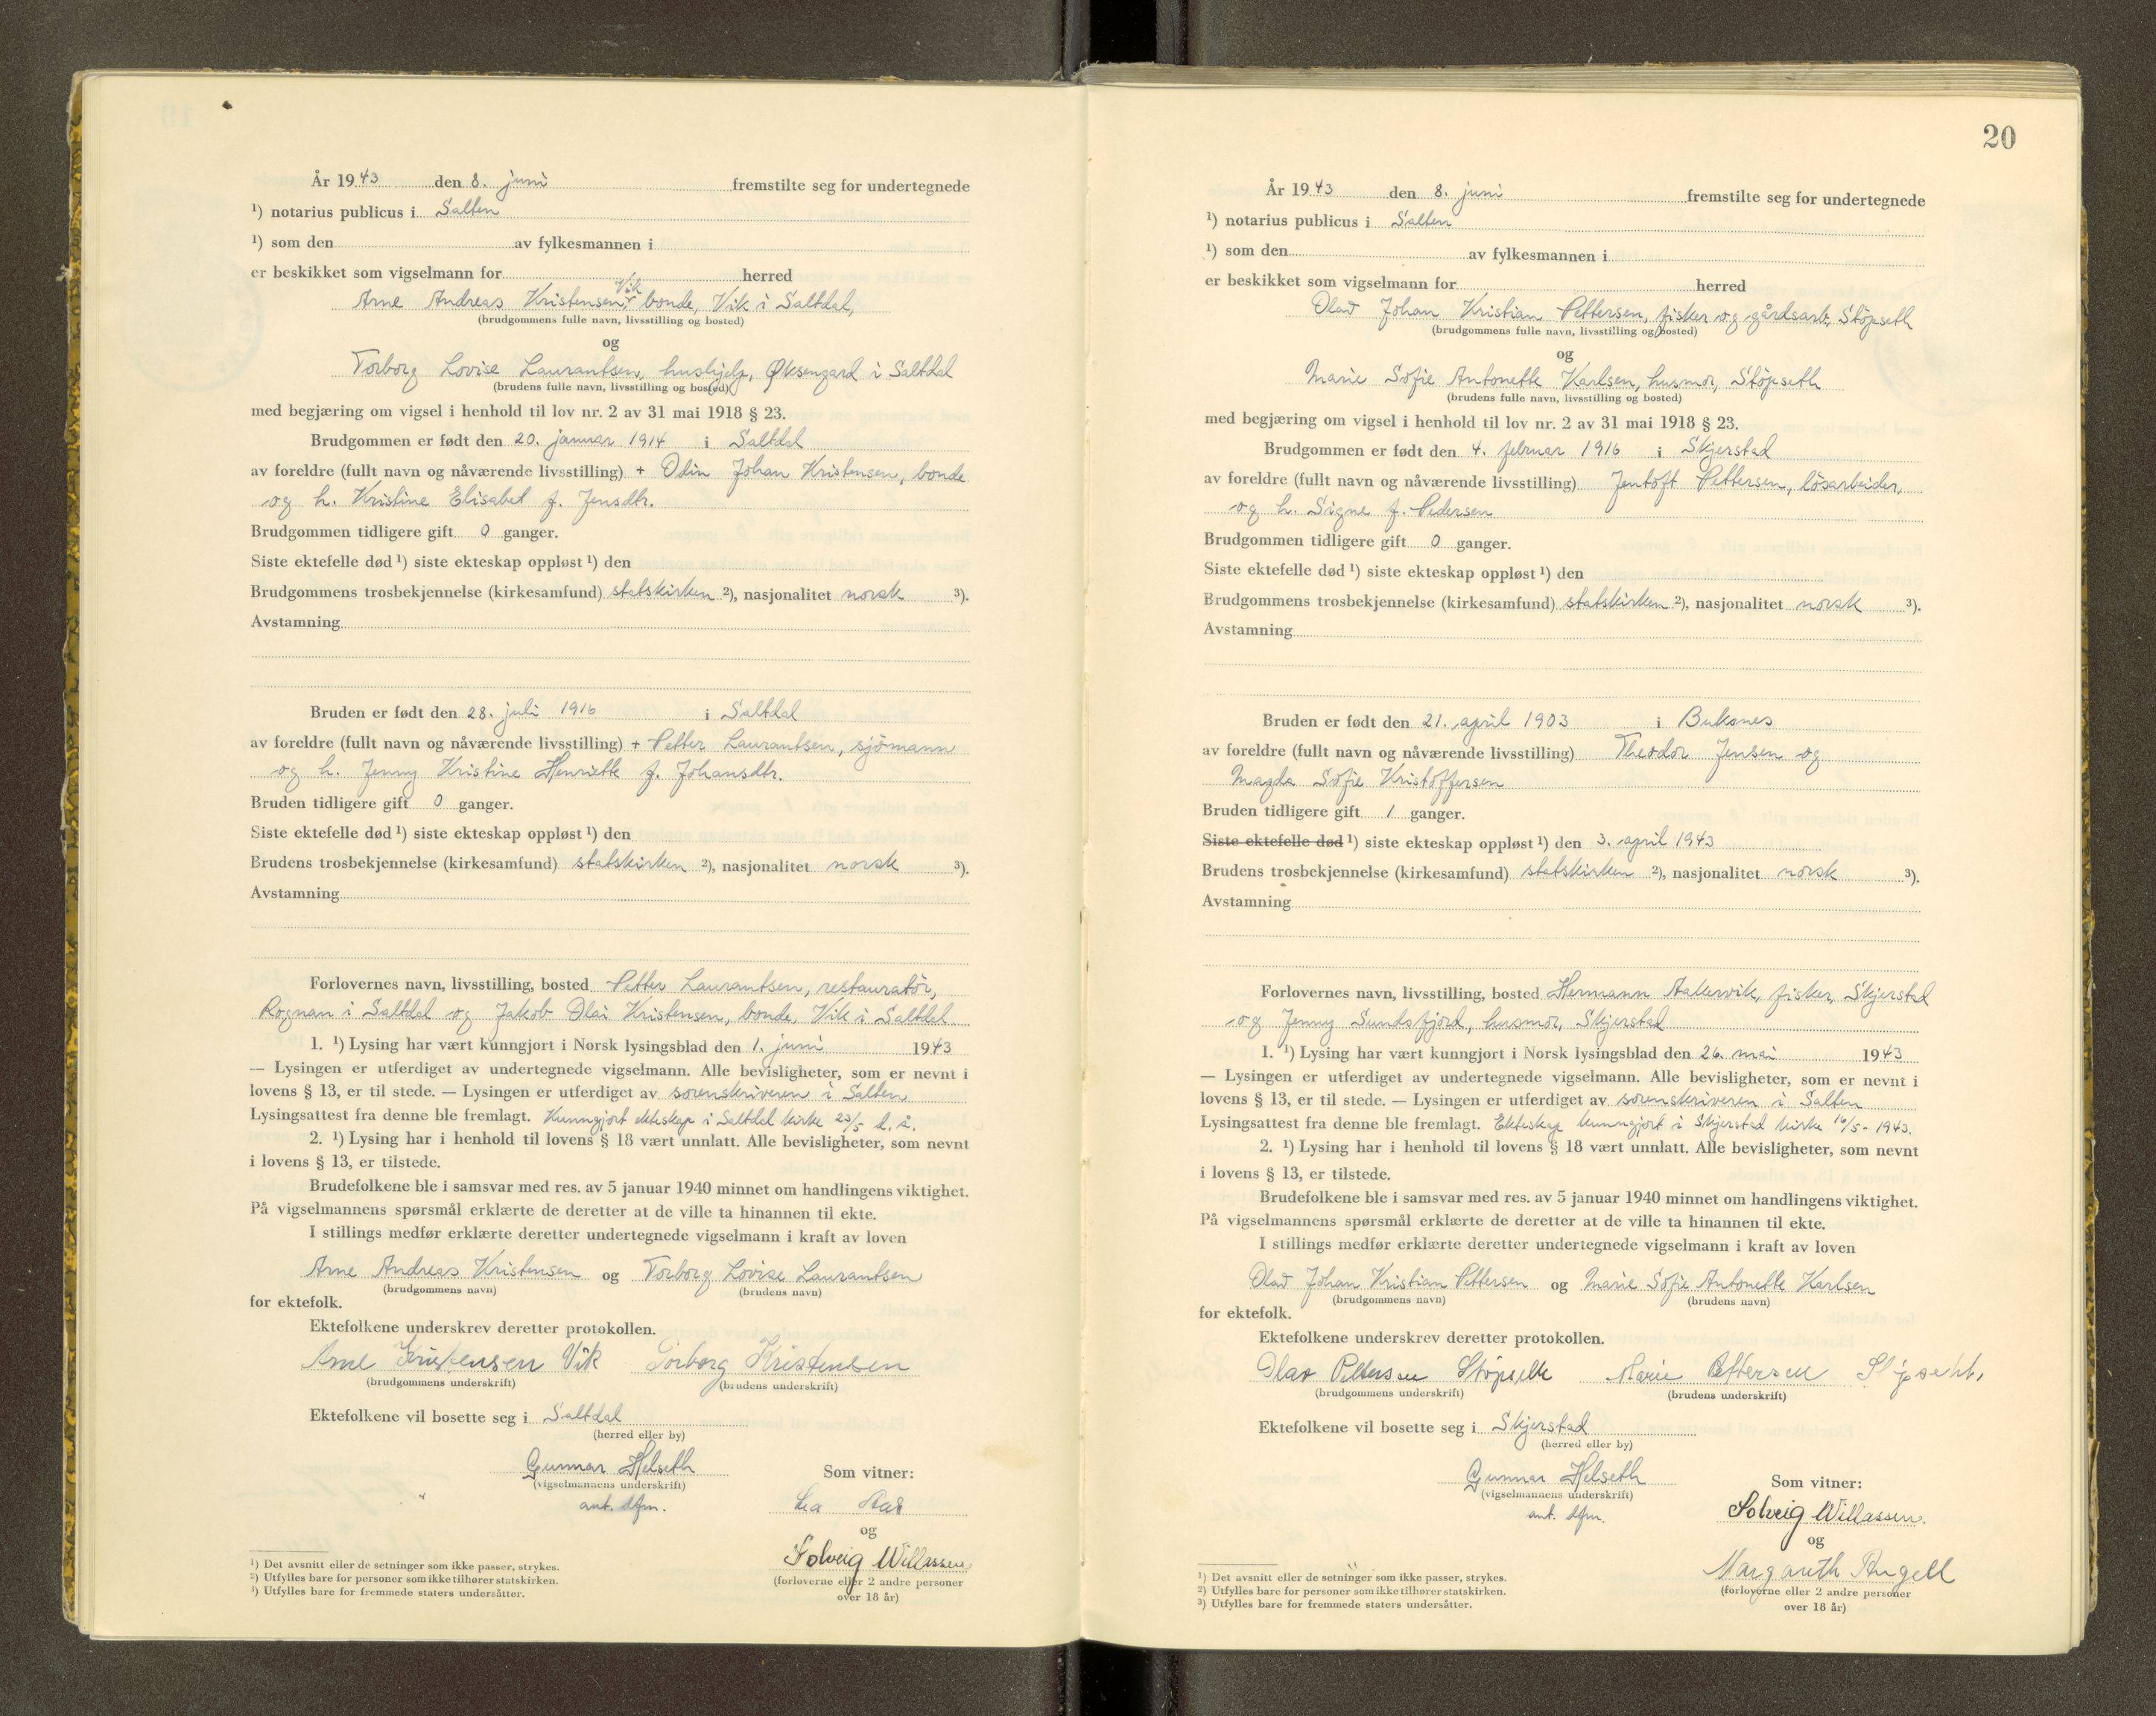 År 1943 den 8. juni fremstilte seg for undertegnede
¹) notarius publicus i Salten
¹) som den av fylkesmannen i
er beskikket som vigselmann for herred
Vik
Arne Andreas Kristensen, bonde, Vik i Saltdal,
(brudgommens fulle navn, livsstilling og bosted)
og
Torborg Lovise Laurantsen, hushjelp, Øksengard i Saltdal
(brudens fulle navn, livsstilling og bosted)
med begjæring om vigsel i henhold til lov nr. 2 av 31 mai 1918 § 23.
Brudgommen er født den 20. januar 1914 i Saltdal
av foreldre (fullt navn og nåværende livsstilling) + Odin Johan Kristensen, bonde
og h. Kristine Elisabet f. Jensdtr.
Brudgommen tidligere gift 0 ganger.
Siste ektefelle død ¹) siste ekteskap oppløst ¹) den
Brudgommens trosbekjennelse (kirkesamfund) statskirken ²), nasjonalitet norsk ³).
Avstamning
Bruden er født den 28. juli 1916 i Saltdal
av foreldre (fullt navn og nåværende livsstilling) + Petter Laurantsen, sjömann
og h. Jenny Kristine Henriette f. Johansdtr.
Bruden tidligere gift 0 ganger.
Siste ektefelle død ¹) siste ekteskap oppløst ¹) den
Brudens trosbekjennelse (kirkesamfund) statskirken ²), nasjonalitet norsk ³).
Avstamning
Forlovernes navn, livsstilling, bosted Petter Laurantsen, restauratör,
Rognan i Saltdal og Jakob Olai Kristensen, bonde, Vik i Saltdal
1. ¹) Lysing har vært kunngjort i Norsk lysingsblad den 1. juni 1943
— Lysingen er utferdiget av undertegnede vigselmann. Alle bevisligheter, som er nevnt i
lovens § 13, er til stede. — Lysingen er utferdiget av sorenskriveren i Salten
Lysingsattest fra denne ble fremlagt. Kunngjort ekteskap i Saltdal kirke 23/5 d. å.
2. ¹) Lysing har i henhold til lovens § 18 vært unnlatt. Alle bevisligheter, som nevnt
i lovens § 13, er tilstede.
Brudefolkene ble i samsvar med res. av 5 januar 1940 minnet om handlingens viktighet.
På vigselmannens spørsmål erklærte de deretter at de ville ta hinannen til ekte.
I stillings medfør erklærte deretter undertegnede vigselmann i kraft av loven
Arne Andreas Kristensen og Torborg Lovise Laurantsen
(brudgommens navn) (brudens navn)
for ektefolk.
Ektefolkene underskrev deretter protokollen.
Arne Kristensen Vik Torborg Kristensen
(brudgommens underskrift) (brudens underskrift)
Ektefolkene vil bosette seg i Saltdal
(herred eller by)
Gunnar Helseth
(vigselmannens underskrift)
aut. dfm.
Som vitner:
Lea
og
Solveig Willassen
(forloverne eller 2 andre personer
over 18 år)
¹) Det avsnitt eller de setninger som ikke passer, strykes.
²) Utfylles bare for personer som ikke tilhører statskirken.
³) Utfylles bare for fremmede staters undersåtter.
20
År 1943 den 8. juni fremstilte seg for undertegnede
¹) notarius publicus i Salten
¹) som den av fylkesmannen i
er beskikket som vigselmann for herred
Olav Johan Kristian Pettersen, fisker og gårdsarb., Støpseth
(brudgommens fulle navn, livsstilling og bosted)
og
Marie Sofie Antonette Karlsen, husmor, Støpseth
(brudens fulle navn, livsstilling og bosted)
med begjæring om vigsel i henhold til lov nr. 2 av 31 mai 1918 § 23.
Brudgommen er født den 4. februar 1916 i Skjerstad
av foreldre (fullt navn og nåværende livsstilling) Jentoft Pettersen, lösarbeider,
og h. Signe f. Pedersen
Brudgommen tidligere gift 0 ganger.
Siste ektefelle død ¹) siste ekteskap oppløst ¹) den
Brudgommens trosbekjennelse (kirkesamfund) statskirken ²), nasjonalitet norsk ³).
Avstamning
Bruden er født den 21. april 1903 i Buksnes
av foreldre (fullt navn og nåværende livsstilling) Theodor Jensen og
Magda Sofie Kristoffersen
Bruden tidligere gift 1 ganger.
Siste ektefelle død ¹) siste ekteskap oppløst ¹) den 3. april 1943
Brudens trosbekjennelse (kirkesamfund) statskirken ²), nasjonalitet norsk ³).
Avstamning
Forlovernes navn, livsstilling, bosted Hermann Aakervik, fisker, Skjerstad
og Jenny Sundsfjord, husmor, Skjerstad
1. ¹) Lysing har vært kunngjort i Norsk lysingsblad den 26. mai 1943
— Lysingen er utferdiget av undertegnede vigselmann. Alle bevisligheter, som er nevnt i
lovens § 13, er til stede. — Lysingen er utferdiget av sorenskriveren i Salten
Lysingsattest fra denne ble fremlagt. Ekteskap kunngjort i Skjerstad kirke 16/5 - 1943.
2. ¹) Lysing har i henhold til lovens § 18 vært unnlatt. Alle bevisligheter, som nevnt
i lovens § 13, er tilstede.
Brudefolkene ble i samsvar med res. av 5 januar 1940 minnet om handlingens viktighet.
På vigselmannens spørsmål erklærte de deretter at de ville ta hinannen til ekte.
I stillings medfør erklærte deretter undertegnede vigselmann i kraft av loven
Olav Johan Kristian Pettersen og Marie Sofie Antonette Karlsen
(brudgommens navn) (brudens navn)
for ektefolk.
Ektefolkene underskrev deretter protokollen.
Olav Pettersen Støpseth Marie Pettersen Støpseth,
(brudgommens underskrift) (brudens underskrift)
Ektefolkene vil bosette seg i Skjerstad
(herred eller by)
Gunnar Helseth
(vigselmannens underskrift)
aut. dfm.
Som vitner:
Solveig Willassen.
og
Margareth Angell
(forloverne eller 2 andre personer
over 18 år)
¹) Det avsnitt eller de setninger som ikke passer, strykes.
²) Utfylles bare for personer som ikke tilhører statskirken.
³) Utfylles bare for fremmede staters undersåtter.